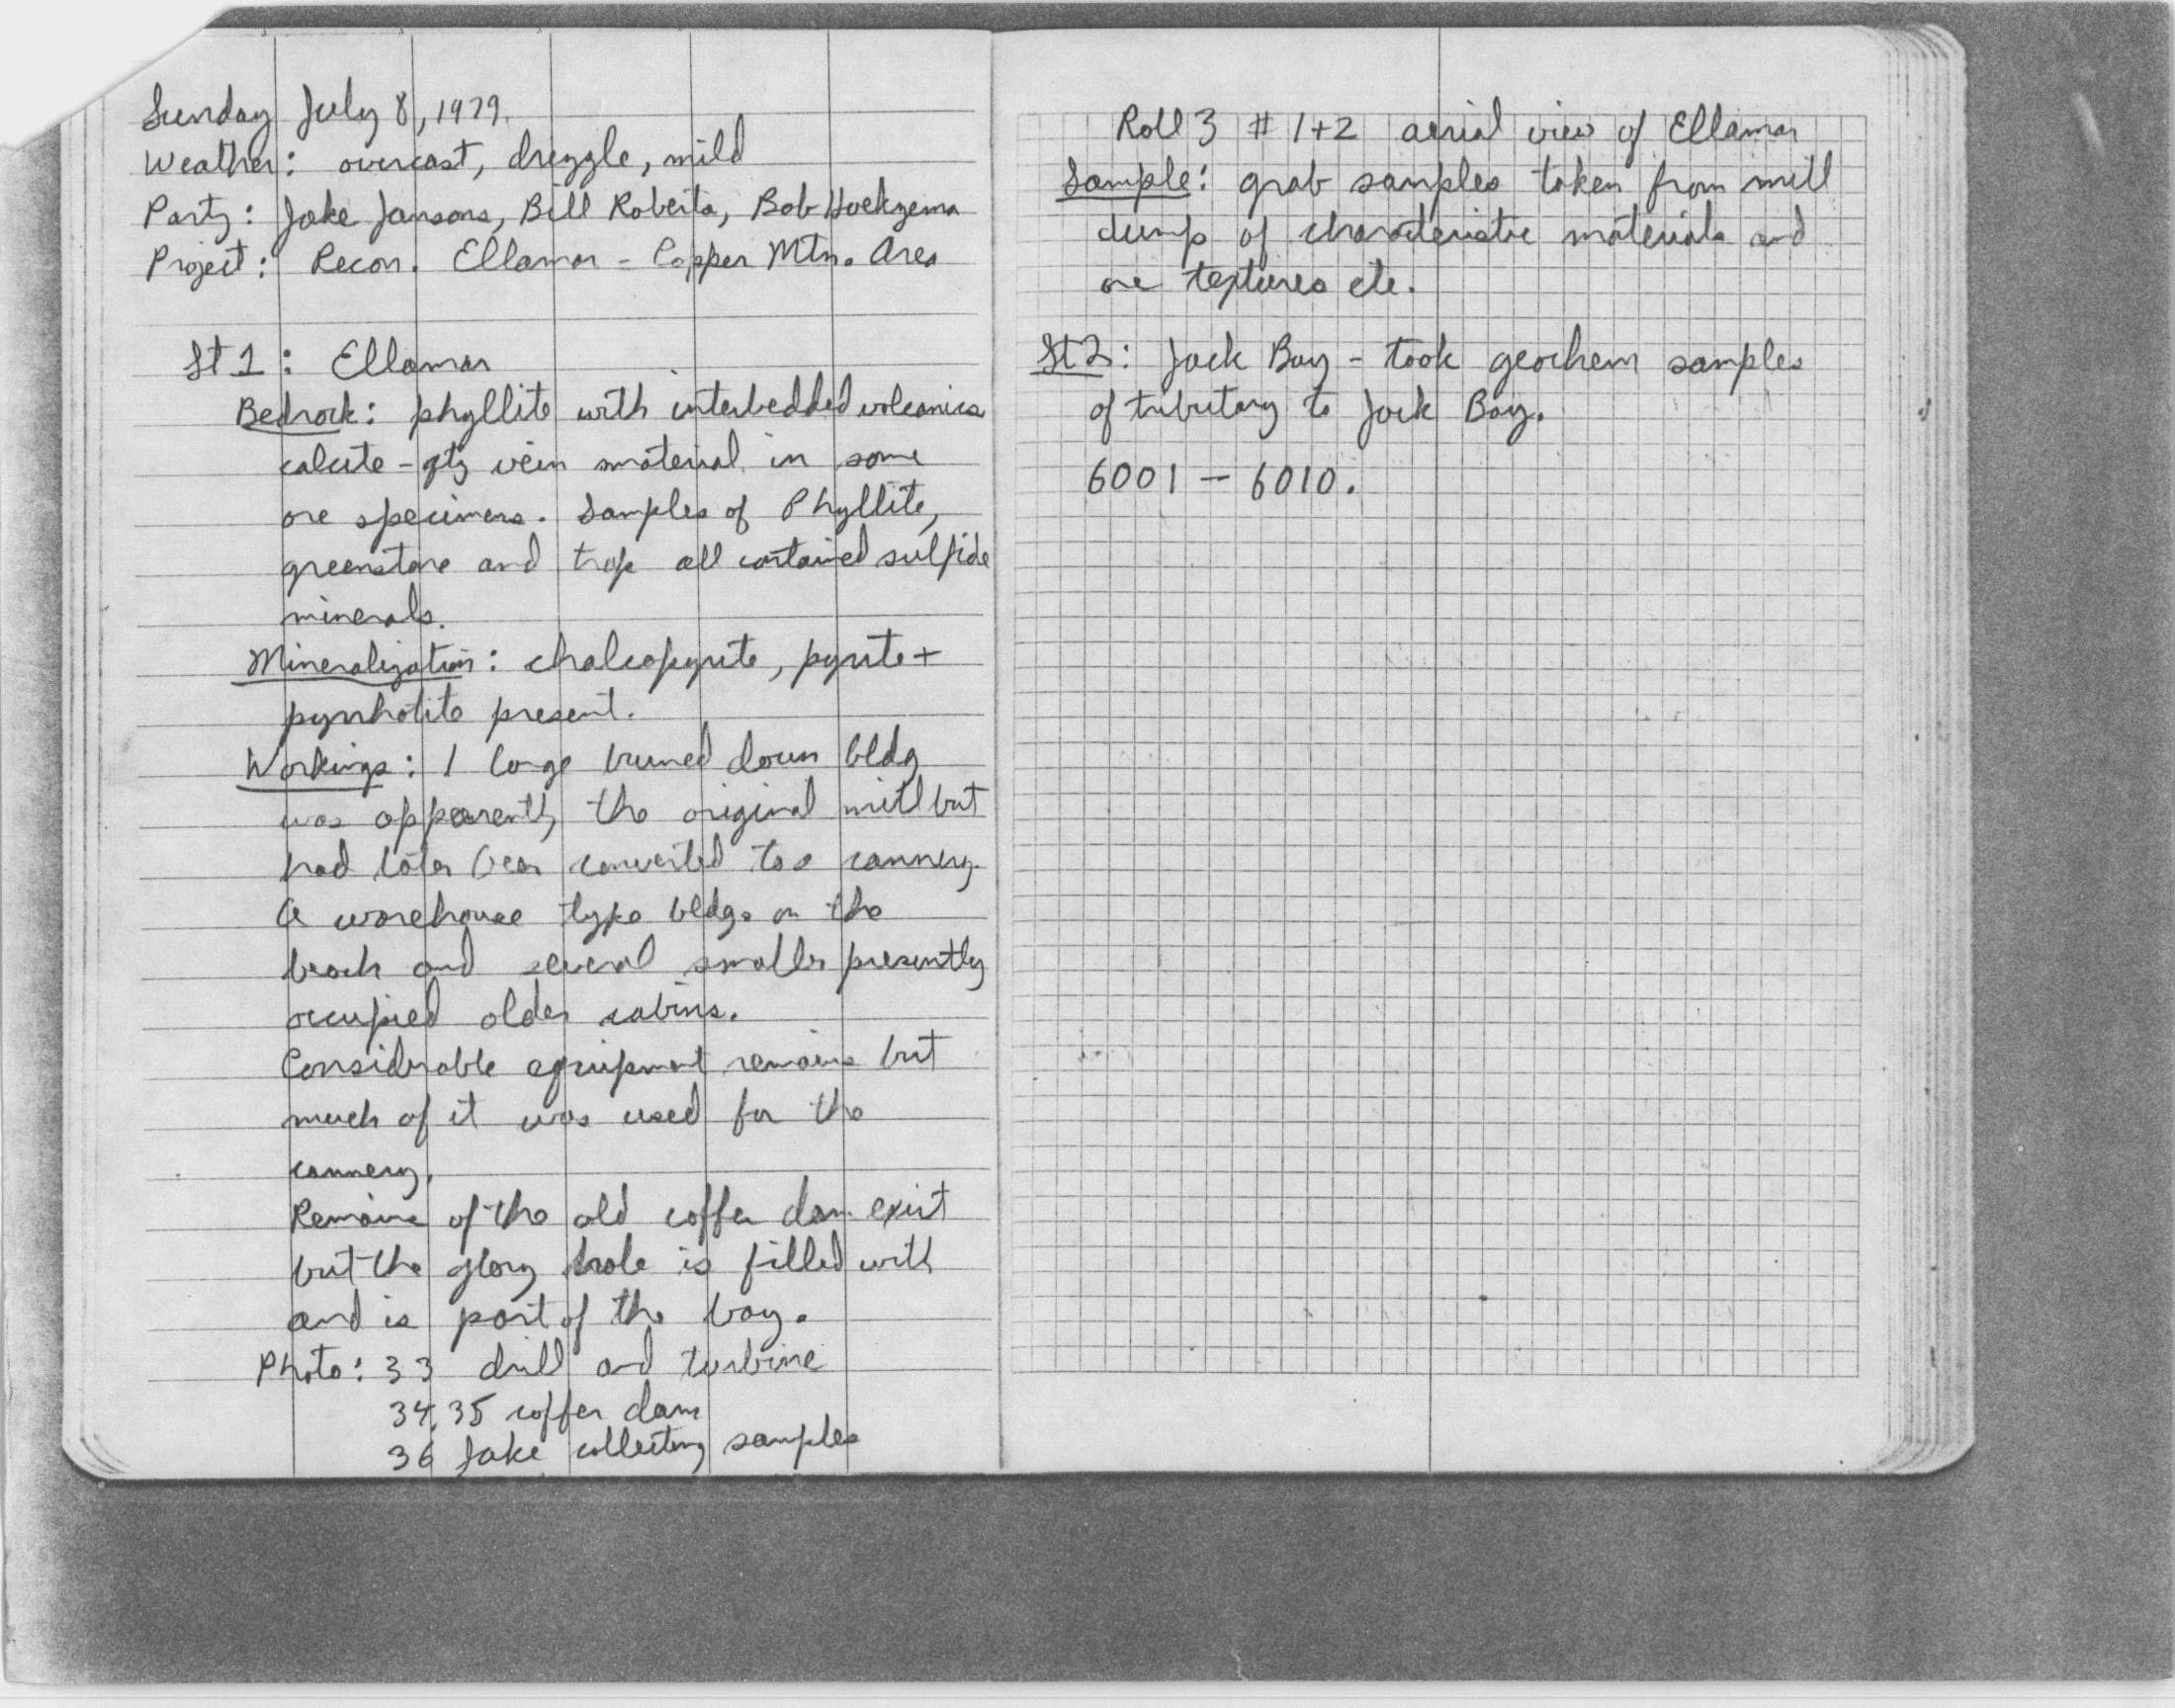 Sunday July 8, 1979.
Weather: overcast, drizzle, mild
Party: Jake Jansons, Bill Roberts, Bob Hoekzema
Project: Recon. Ellamar - Copper Mtn. Area
St 1: Ellamar
Bedrock: phyllite with interbedded volcanics
calcite - qtz vein material in some
ore specimens. Samples of Phyllite,
greenstone and trap all contained sulfide
minerals.
Mineralization: chalcopyrite, pyrite +
pyrrhotite present.
Workings: 1 large burned down bldg
was apparently the original mill but
had later been converted to a cannery.
A warehouse type bldg. on the
beach and several smaller presently
occupied older cabins.
Considerable equipment remains but
much of it was used for the
cannery.
Remains of the old coffer dam exist
but the glory hole is filled with
and is part of the bay.
Photo: 33 drill and turbine
34, 35 coffer dam
36 Jake collecting samples
Roll 3 # 1+2 aerial view of Ellamar
Sample: grab samples taken from mill
dump of characteristic materials and
ore textures etc.
St 2: Jack Bay - took geochem samples
of tributary to Jack Bay.
6001 - 6010.